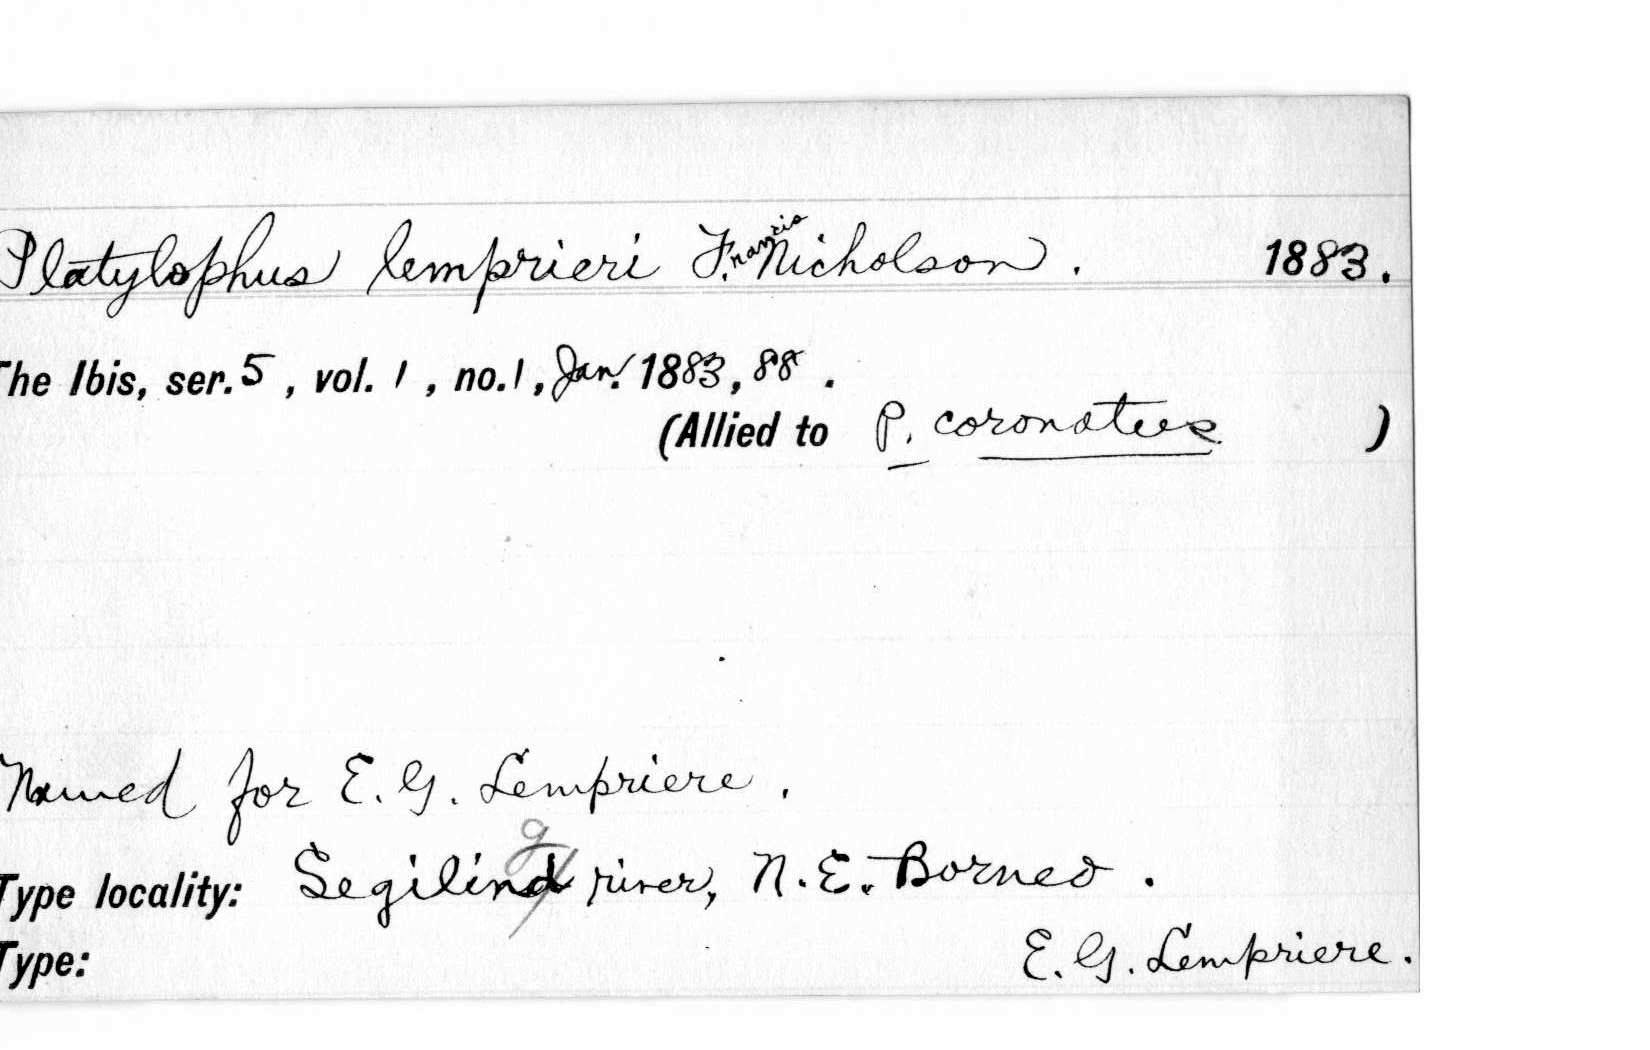 Platylophus lemprieri F. Nicholson. 1883.
rancis
The Ibis, ser. 5, vol. 1, no. 1, Jan. 1883, 88.
(Allied to P. coronatus )
Named for E. G. Lempriere.
g
Type locality: Segilind river, N. E. Borneo.
Type: E. G. Lempriere.